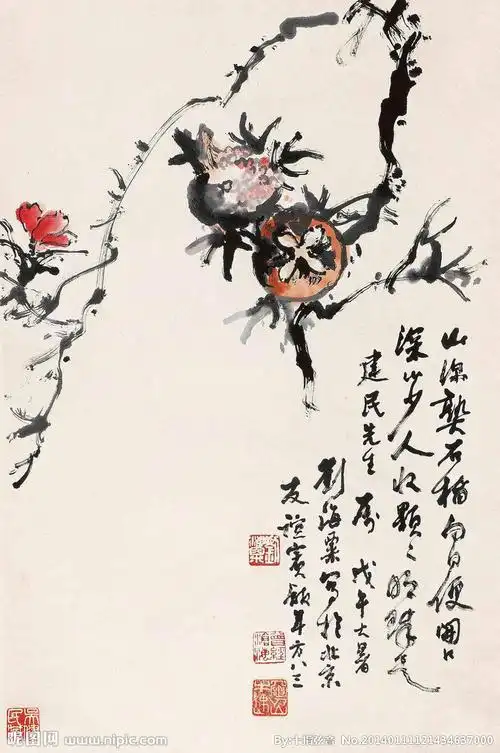 山深熟石榴向日便開口
深山少人收顆〻明珠走
建民先生屬 戊午大暑
劉海粟寫於北京
友誼賓館年方八三
昵图网 www.nipic.com
No.20140111121434637000